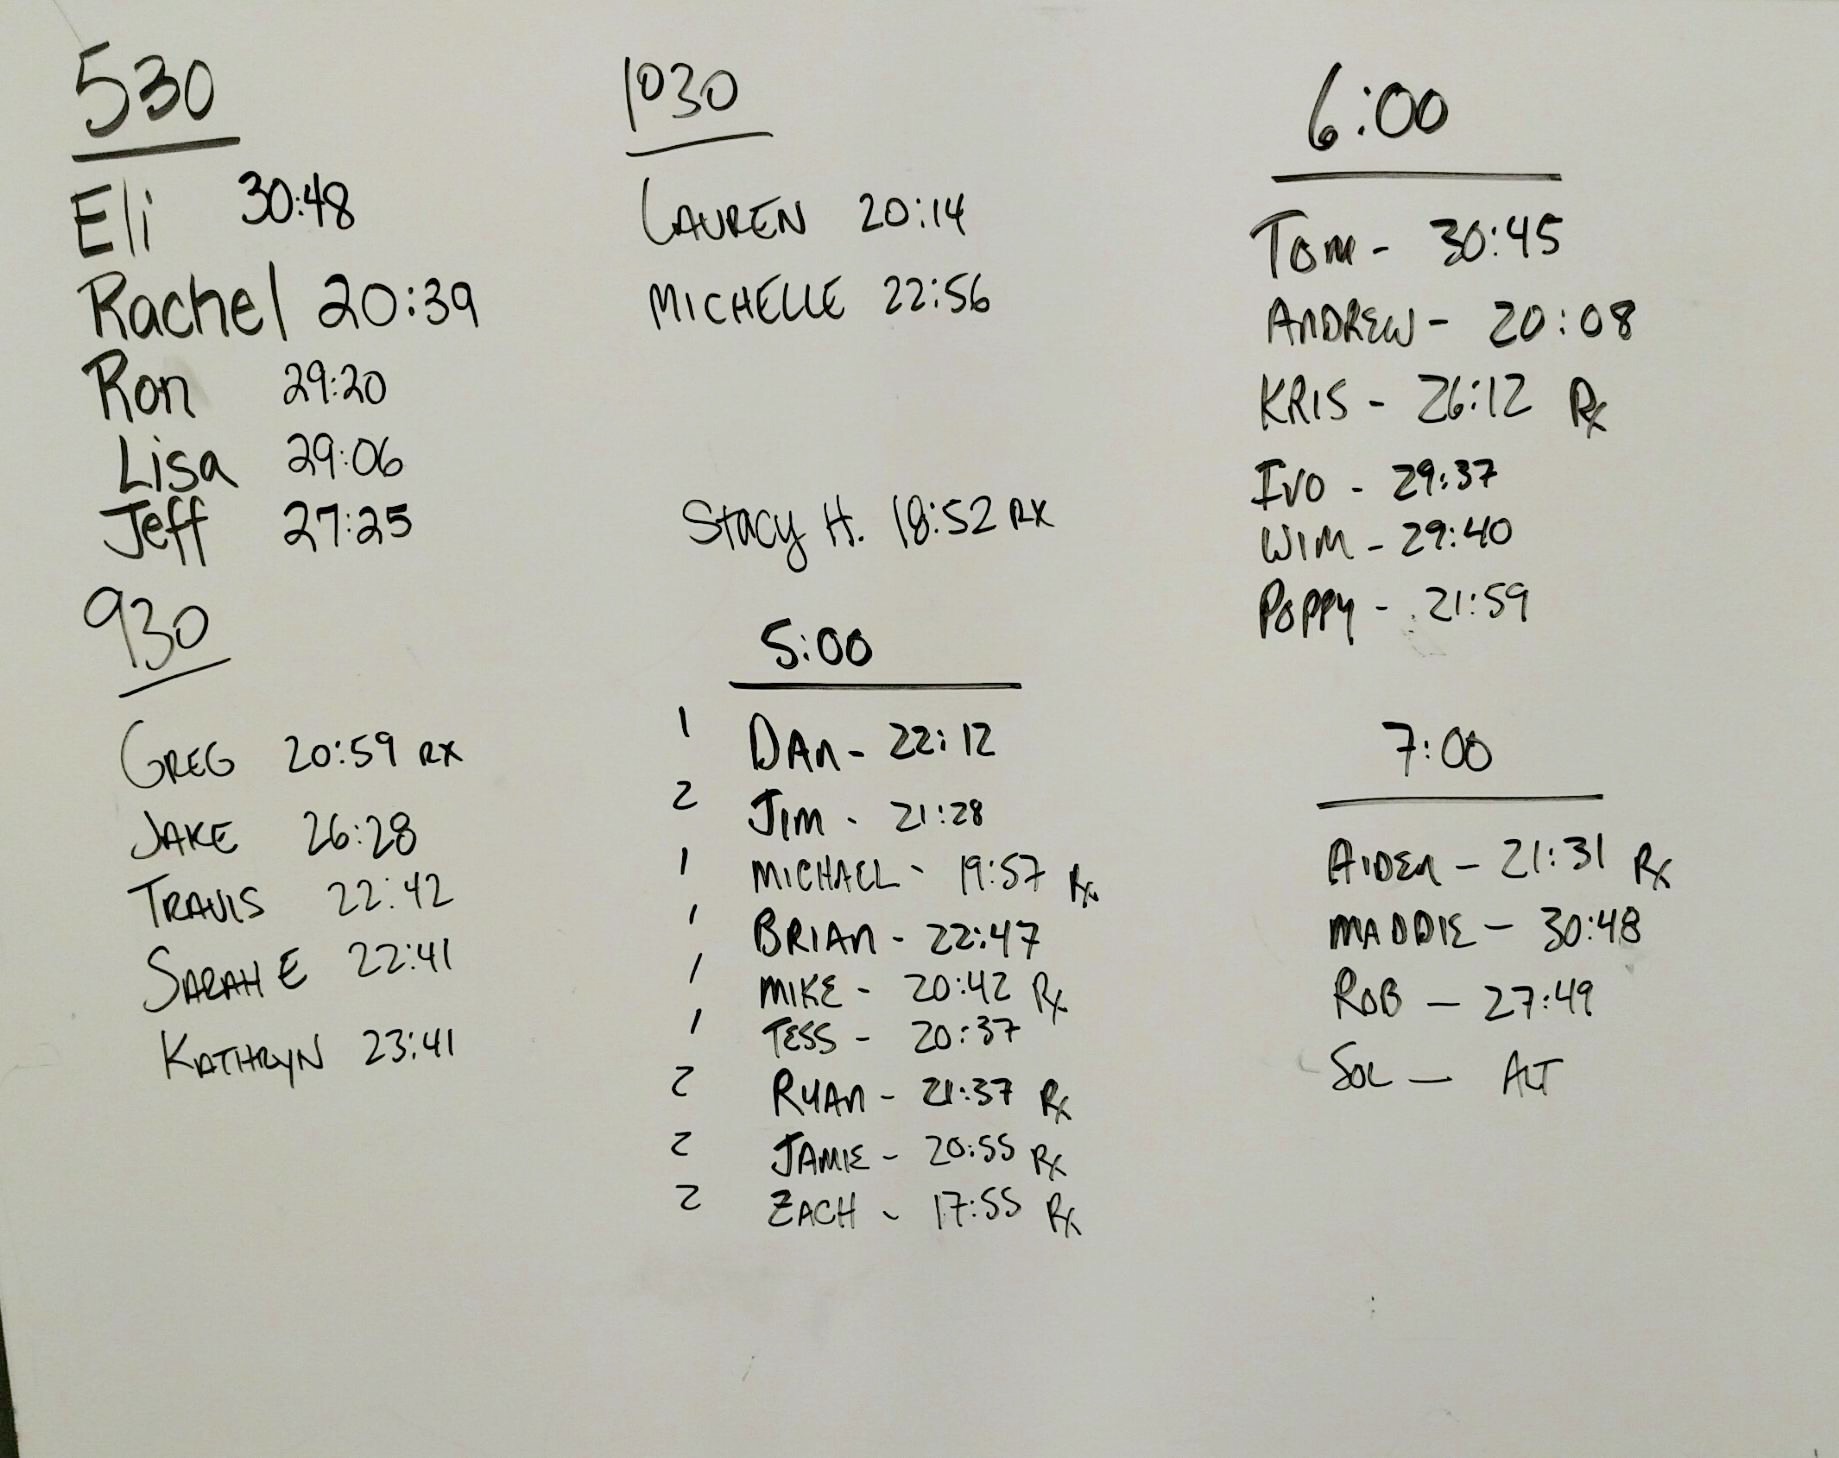 530
Eli 30:48
Rachel 20:39
Ron 29:20
Lisa 29:06
Jeff 27:25
930
GREG 20:59 RX
JAKE 26:28
TRAVIS 22:42
SARAH E 22:41
KATHRYN 23:41
1030
LAUREN 20:14
MICHELLE 22:56
Stacy H. 18:52 RX
5:00
1 DAN - 22:12
2 JIM - 21:28
1 MICHAEL - 19:57 Rx
1 BRIAN - 22:47
1 MIKE - 20:42 Rx
1 TESS - 20:37
2 RYAN - 21:37 Rx
2 JAMIE - 20:55 Rx
2 ZACH - 17:55 Rx
6:00
TOM - 30:45
ANDREW - 20:08
KRIS - 26:12 Rx
IVO - 29:37
WIM - 29:40
POPPY - 21:59
7:00
AIDEN - 21:31 Rx
MADDIE - 30:48
ROB - 27:49
SOL - ALT